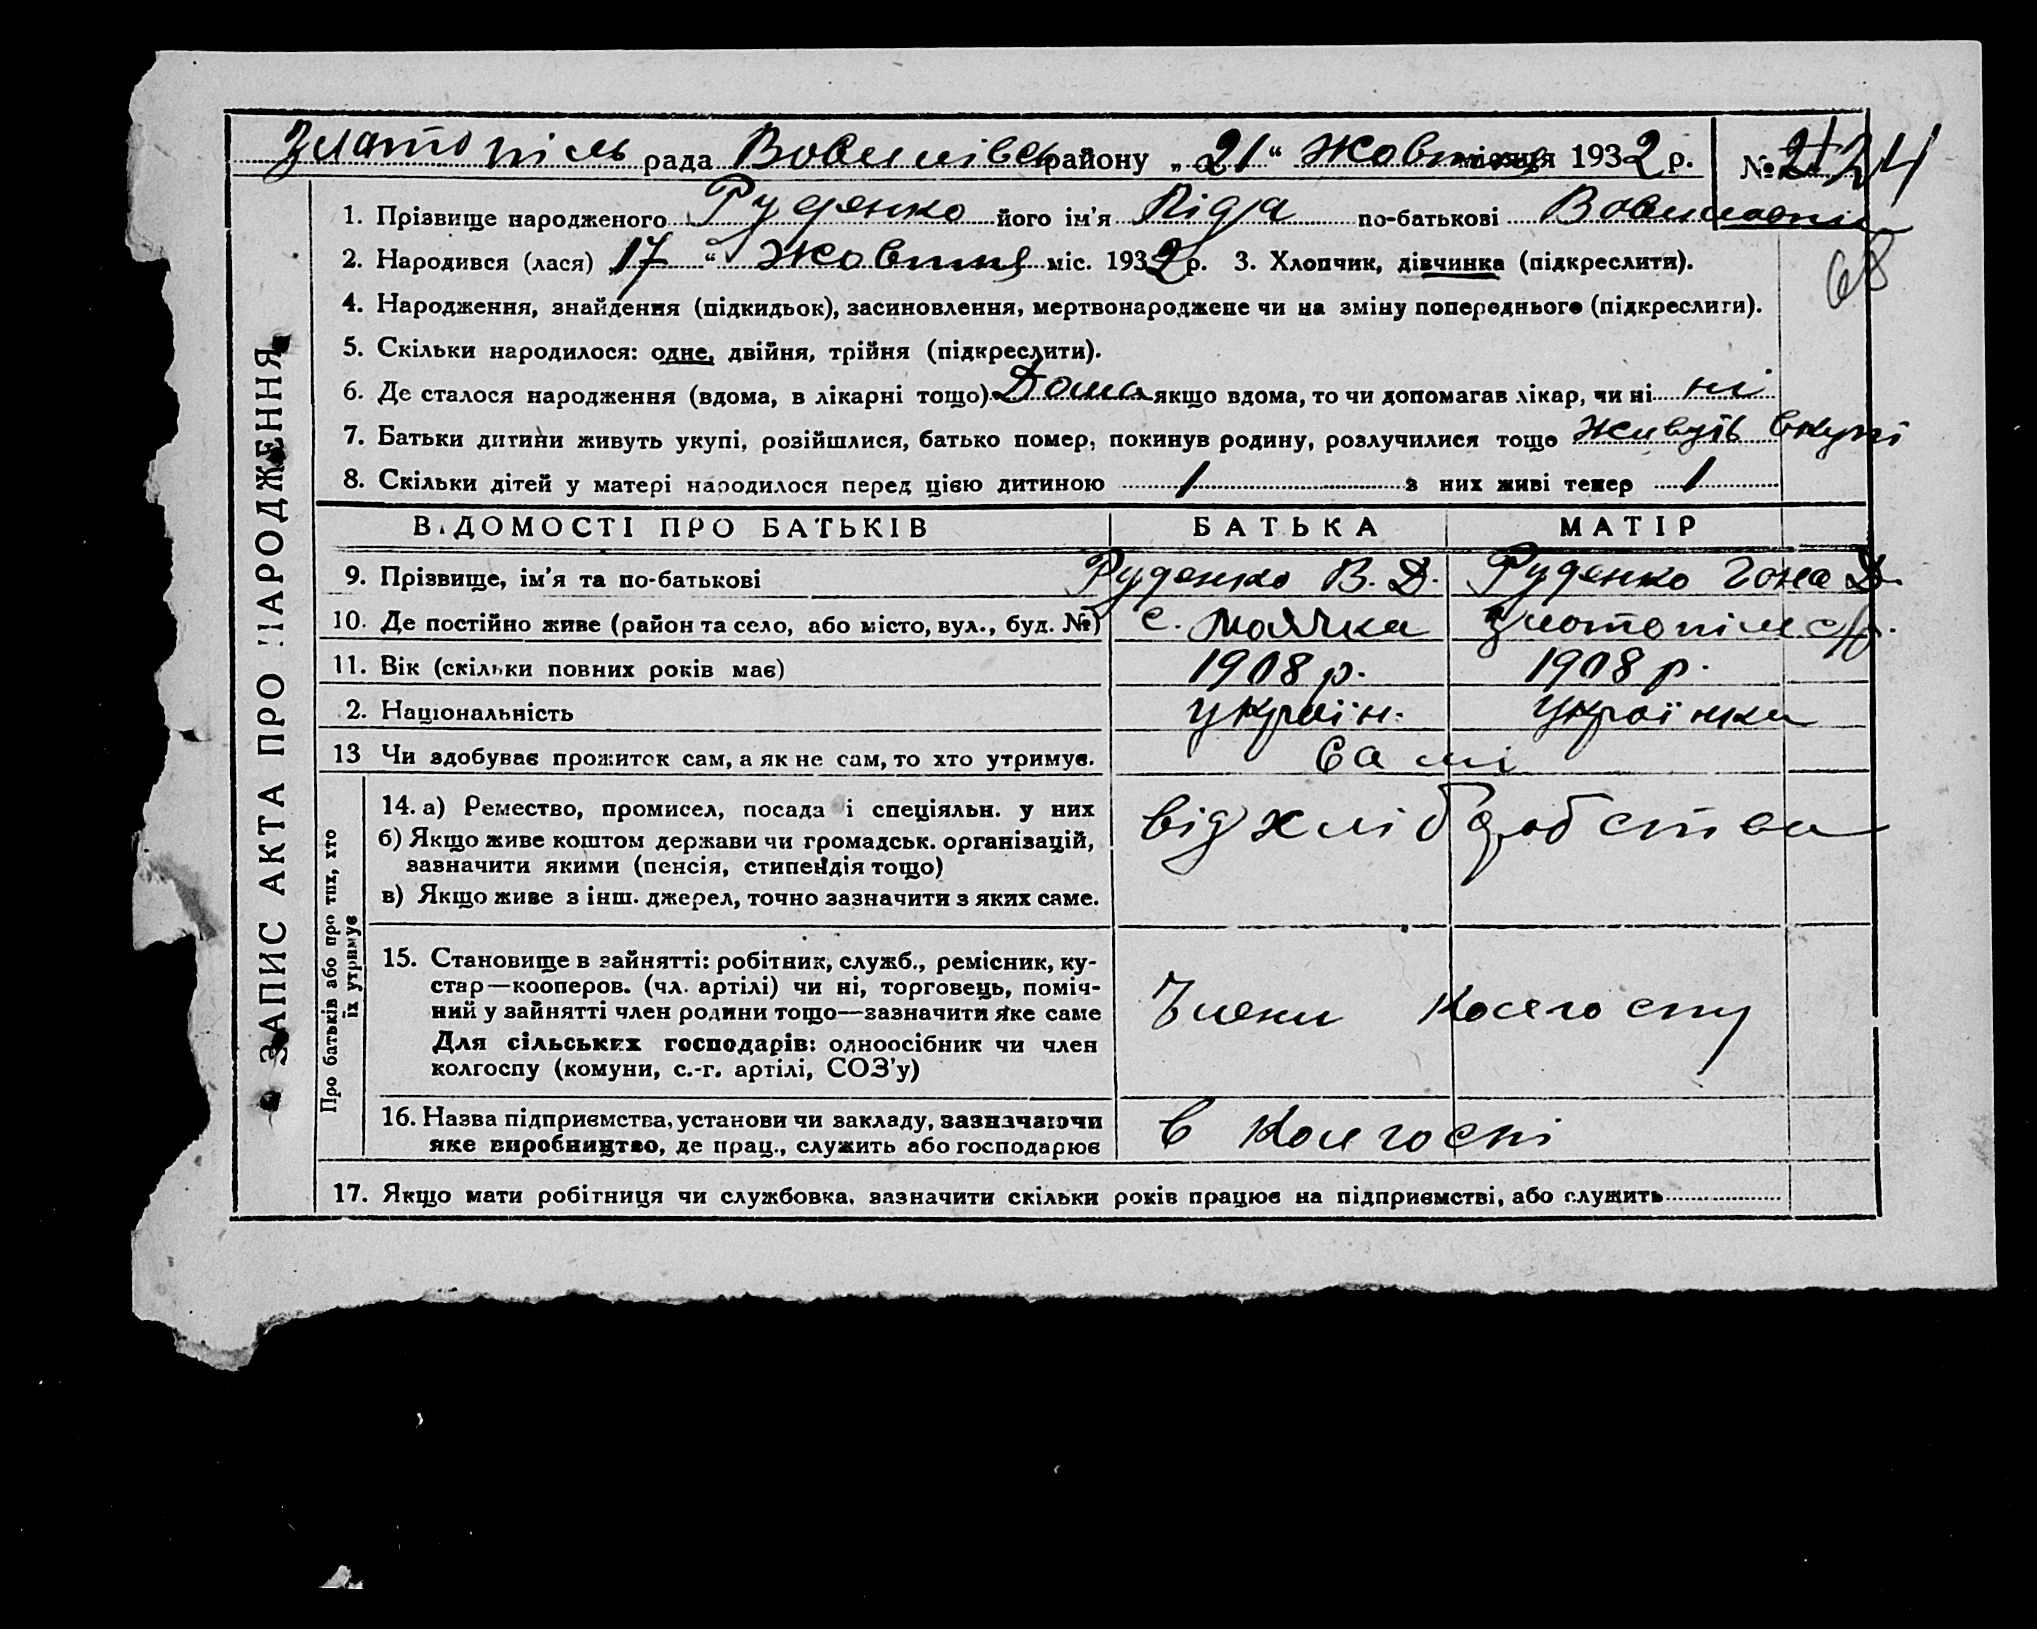 Златопіль рада району „21“ Жовтня місяця 1932 р. № 24
1. Прізвище народженого Руденко його ім'я Лідја по-батькові
2. Народився (лася) 17 “ Жовтня міс. 1932 р. 3. Хлопчик, дівчинка (підкреслити).
68
4. Народження, знайдення (підкидьок), засиновлення, мертвонароджене чи на зміну попереднього (підкреслити).
5. Скільки народилося: одне, двійня, трійня (підкреслити).
6. Де сталося народження (вдома, в лікарні тощо) Дома якщо вдома, то чи допомагав лікар, чи ні ні
7. Батьки дитини живуть укупі, розійшлися, батько помер, покинув родину, розлучилися тощо живуть вкупі
8. Скільки дітей у матері народилося перед цією дитиною 1 з них живі тепер 1
ЗАПИС АКТА ПРО НАРОДЖЕННЯ
ВІДОМОСТІ ПРО БАТЬКІВ БАТЬКА МАТІР
9. Прізвище, ім'я та по-батькові Руденко В. Д. Руденко Гона Д.
10. Де постійно живе (район та село, або місто, вул., буд. №) с. Маячка Златопіль с/р.
11. Вік (скільки повних років має) 1908 р. 1908 р.
2. Національність україн. українка
13 Чи здобуває прожиток сам, а як не сам, то хто утримує. Самі
Про батьків або про тих, хто
їх утримує
14. а) Ремество, промисел, посада і спеціяльн. у них від хліборобства
б) Якщо живе коштом держави чи громадськ. організацій,
зазначити якими (пенсія, стипендія тощо)
в) Якщо живе з інш. джерел, точно зазначити з яких саме.
15. Становище в зайнятті: робітник, служб., ремісник, ку-
стар—кооперов. (чл. артілі) чи ні, торговець, поміч-
ний у зайнятті член родини тощо—зазначити яке саме Члени колгоспу
Для сільських господарів: одноосібник чи член
колгоспу (комуни, с.-г. артілі, СОЗ'у)
16. Назва підприємства, установи чи закладу, зазначаючи
яке виробництво, де прац., служить або господарює в колгоспі
17. Якщо мати робітниця чи службовка, зазначити скільки років працює на підприємстві, або служить